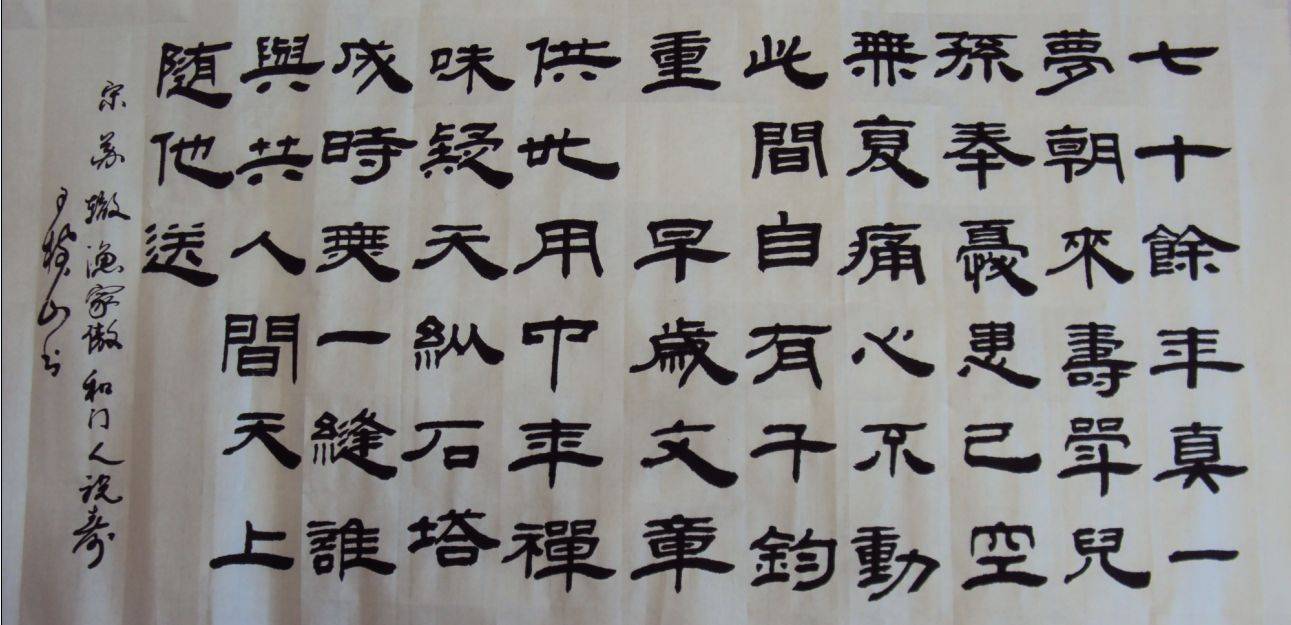 七十餘年真一
夢朝來壽斝兒
孫奉憂患已空
無复痛心不動
此間自有千鈞
重 早歲文章
供世用中年禪
味疑天縱石塔
成時無一縫誰
與共人間天上
隨他送
宋苏辙渔家傲 和门人祝寿
山书